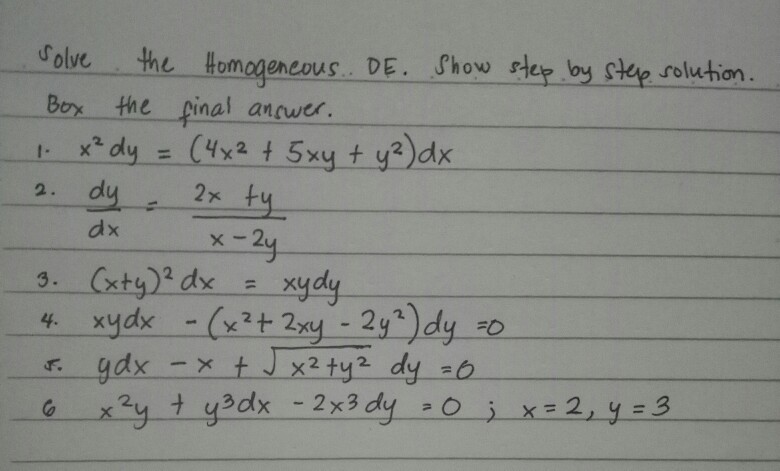 Solve the Homogeneous.. DE. Show step by step solution.
Box the final answer.
1. x² dy = (4x² + 5xy + y²)dx
2. dy/dx = 2x + y / x - 2y
3. (x+y)² dx = xydy
4. xydx - (x² + 2xy - 2y²)dy = 0
5. ydx - x + √x² + y² dy = 0
6 x²y + y³dx - 2x3 dy = 0 ; x = 2, y = 3